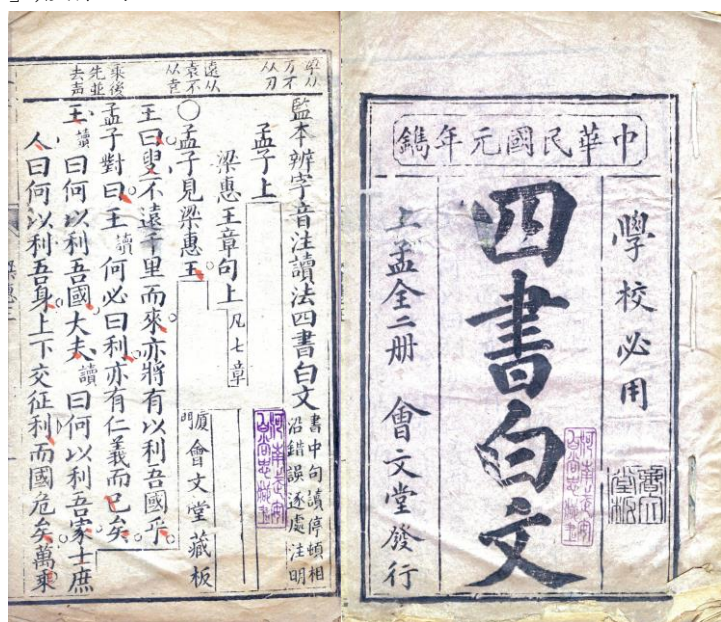 中華民國元年鐫
學校必用
四書白文
上孟全二册 會文堂發行
乘後
先並
去声
遠从
袁不
从
万不
从刃
監本辨字音注讀法四書白文
書中句讀停頓相
沿錯誤逐處注明
孟子上
梁惠王章句上 凡七章
廈門 會文堂藏板
○孟子見梁惠王
王曰叟不遠千里而來亦將有以利吾國乎
孟子對曰王讀何必曰利亦有仁義而已矣
王讀曰何以利吾國大夫讀曰何以利吾家士庶
人曰何以利吾身上下交征利而國危矣萬乘